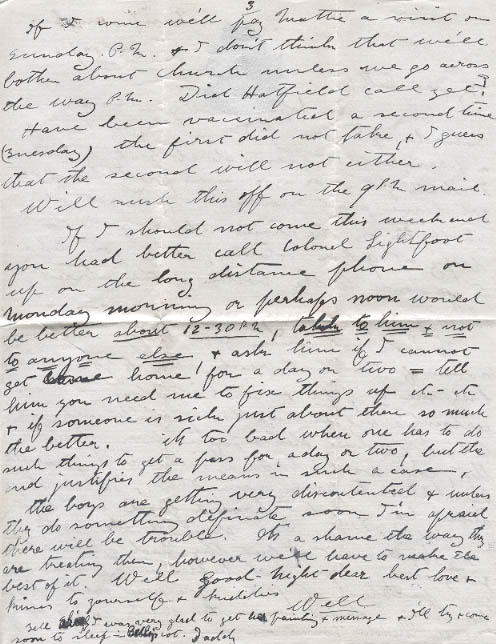 3
If I come we'll pay Mattie a visit on
Sunday P.M. & I don't think that we'll
bother about church unless we go across
the way P.M. Did Hatfield call yet?
Have been vaccinated a second time
(Tuesday) the first did not take, & I guess
that the second will not either.
Will rush this off on the 9 P.M. mail.
If I should not come this weekend
you had better call Colonel Lightfoot
up on the long distance phone on
Monday morning or perhaps noon would
be better about 12-30 P.M., talk to him & not
to anyone else & ask him if I cannot
get home for a day or two = tell
him you need me to fix things up etc - etc
& if someone is sick just about then so much
the better. It too bad when one has to do
such things to get a pass for a day or two, but the
end justifies the means in such a case.
The boys are getting very discontented & unless
they do something definate soon I'm afraid
there will be trouble. It's a shame the way they
are treating them, however we'll have to make the
best of it. Well good-night dear best love &
kisses to yourself & kiddies
Will
Tell I was very glad to get painting & message & I'll try & come
soon to sleep = cot. Daddy